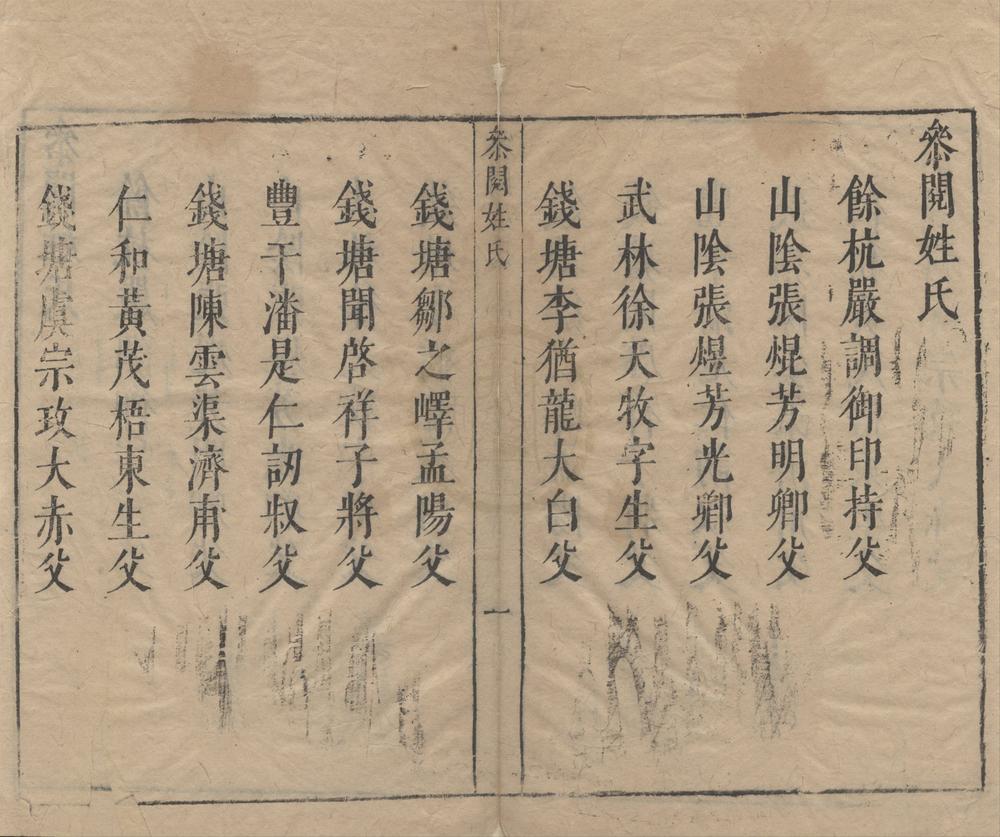 叅閱姓氏
餘杭嚴調御印持父
山陰張焜芳明卿父
山陰張煜芳光卿父
武林徐天牧字生父
錢塘李猶龍大白父
叅閱姓氏
一
錢塘鄒之嶧孟陽父
錢塘聞啓祥子將父
豐干潘是仁訒叔父
錢塘陳雲渠濟甫父
仁和黃茂梧東生父
錢塘虞宗玫大赤父